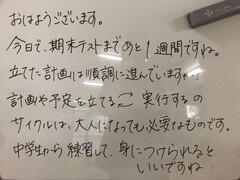 おはようございます。
今日で、期末テストまであと1週間ですね。
立てた計画は順調に進んでいますか…?
計画や予定を立てる⇄実行するの
サイクルは、大人になっても必要なものです。
中学生から練習して、身につけられると
いいですね